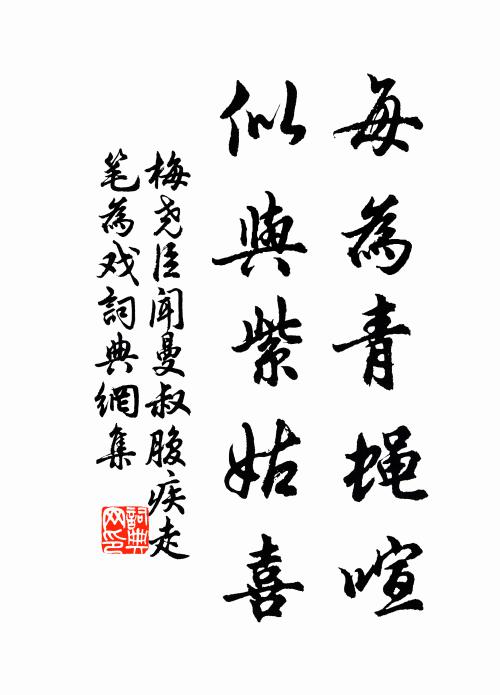 每為青蝇喧
似與紫姑喜
梅尧臣闻曼叔腹疾走
笔為戏詞典網集
詞典
网印